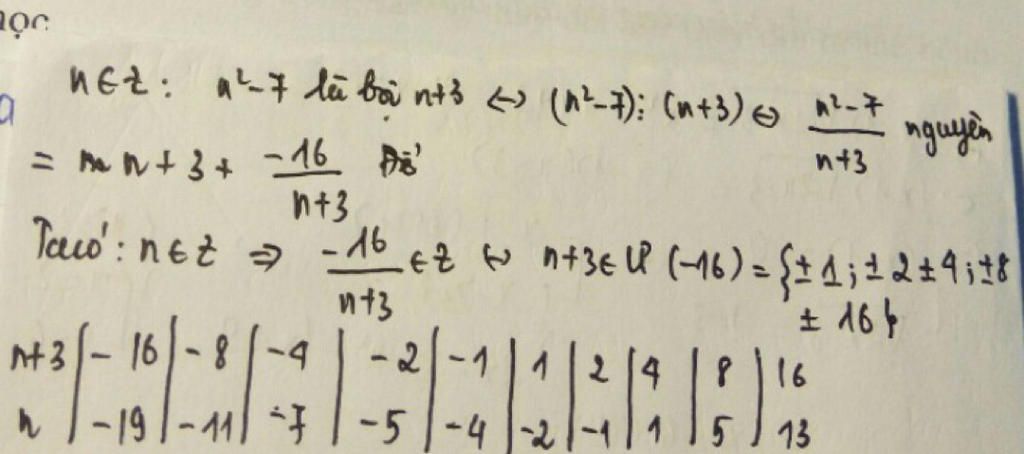 học
n∈Z : n²-7 là bội n+3 ⇔ (n²-7) ⋮ (n+3) ⇔ n²-7/n+3 nguyên
= n + 3 + -16/n+3 Để
Ta có : n∈Z ⇒ -16/n+3 ∈ Z ⇔ n+3 ∈ Ư (-16) = {±1 ; ±2 ±4 ; ±8
± 16}
n+3 | -16 | -8 | -4 | -2 | -1 | 1 | 2 | 4 | 8 | 16
n | -19 | -11 | -7 | -5 | -4 | -2 | -1 | 1 | 5 | 13